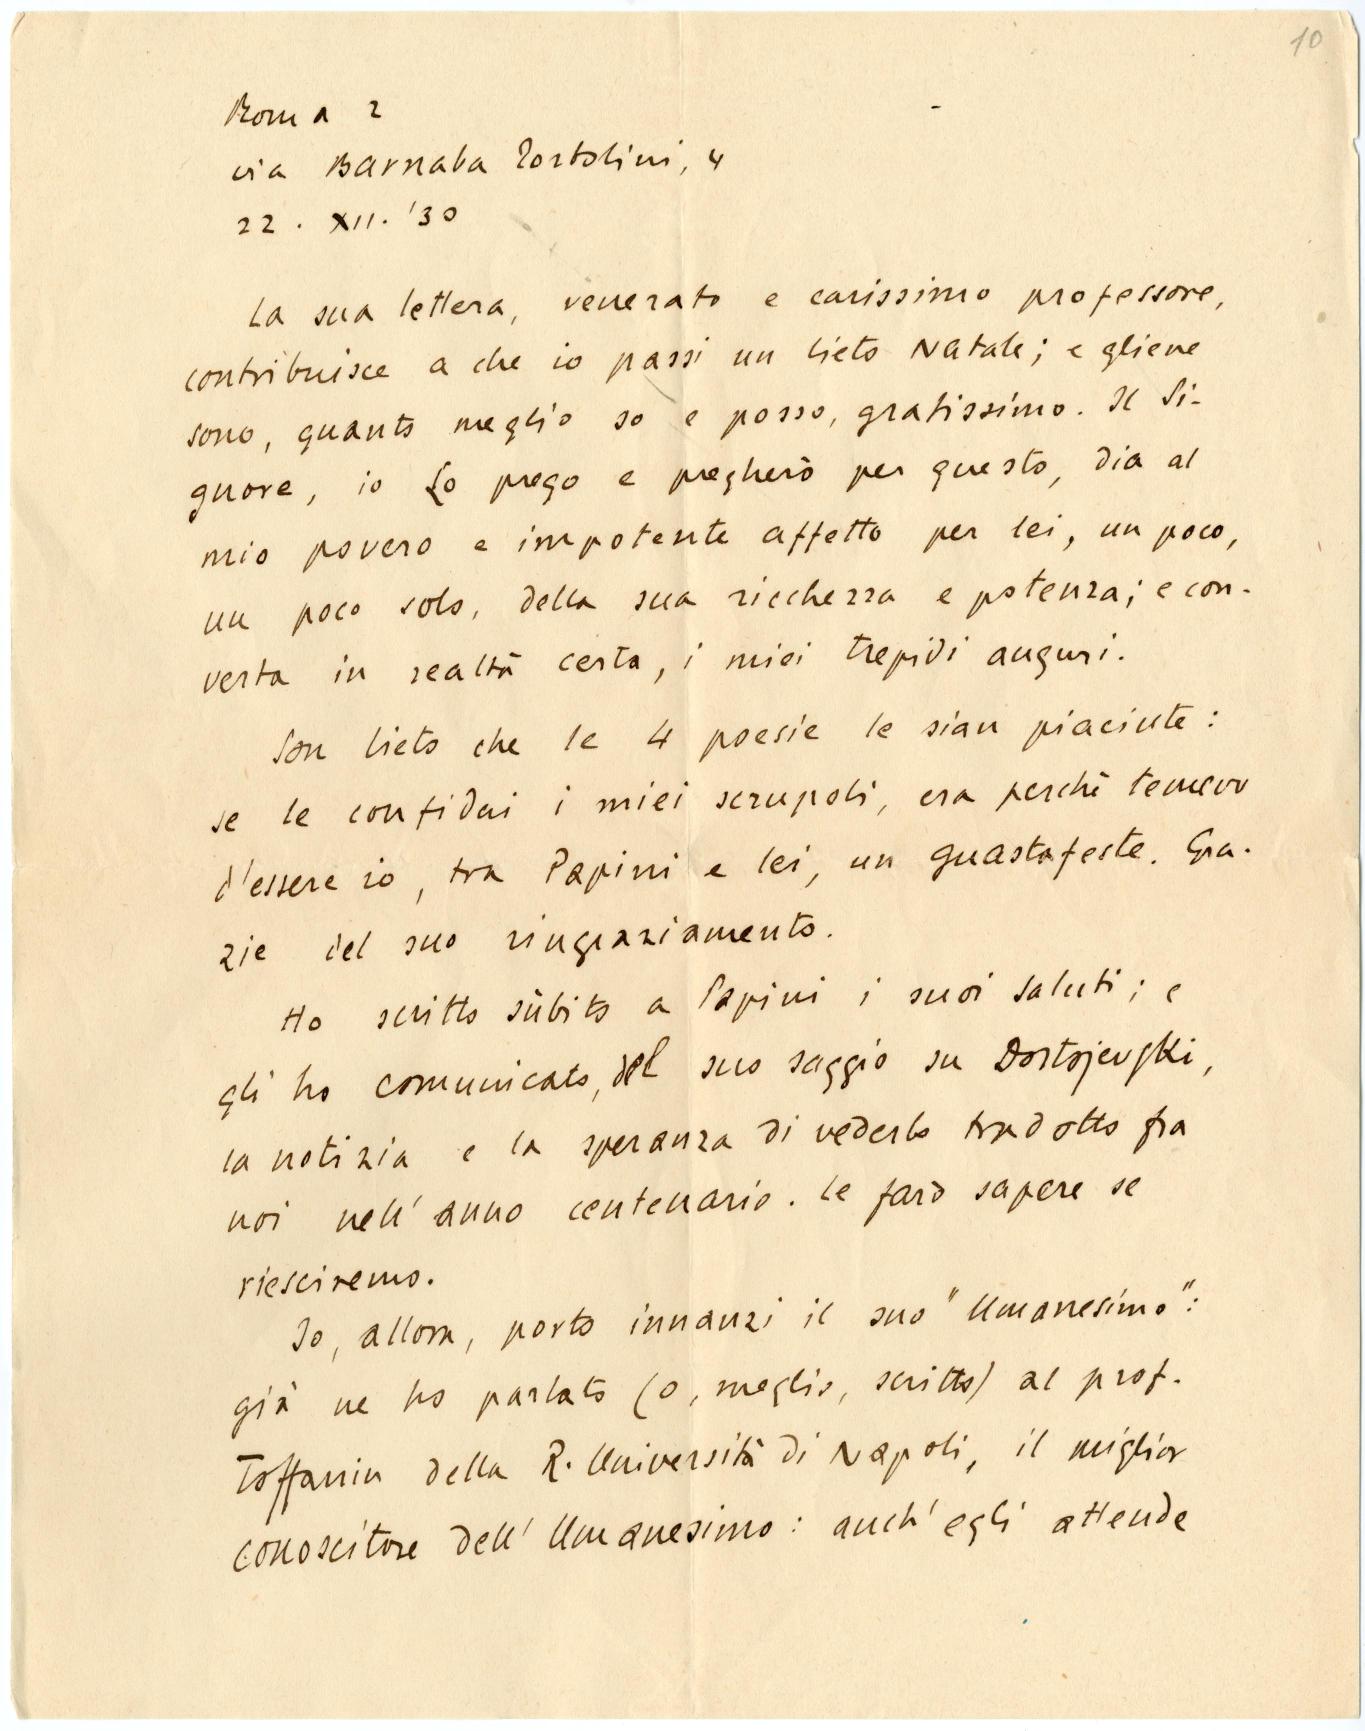 10
Roma 2
via Barnaba Tortolini, 4
22. XII. '30
La sua lettera, venerato e carissimo professore,
contribuisce a che io passi un lieto Natale; e gliene
sono, quanto meglio so e posso, gratissimo. Il Si-
gnore, io Lo prego e pregherò per questo, dia al
mio povero e impotente affetto per lei, un poco,
un poco solo, della sua ricchezza e potenza; e con-
verta in realtà certa, i miei trepidi auguri.
Son lieto che le 4 poesie le sian piaciute:
se le confidai i miei scrupoli, era perchè temevo
d'essere io, tra Papini e lei, un guastafeste. Gra-
zie del suo ringraziamento.
Ho scritto sùbito a Papini i suoi saluti; e
gli ho comunicato, del suo saggio su Dostojevski,
la notizia e la speranza di vederlo tradotto fra
noi nell'anno centenario. Le farò sapere se
riesciremo.
Io, allora, porto innanzi il suo "Umanesimo":
già ne ho parlato (o, meglio, scritto) al prof.
Toffanin della R. Università di Napoli, il miglior
conoscitore dell'Umanesimo: anch'egli attende